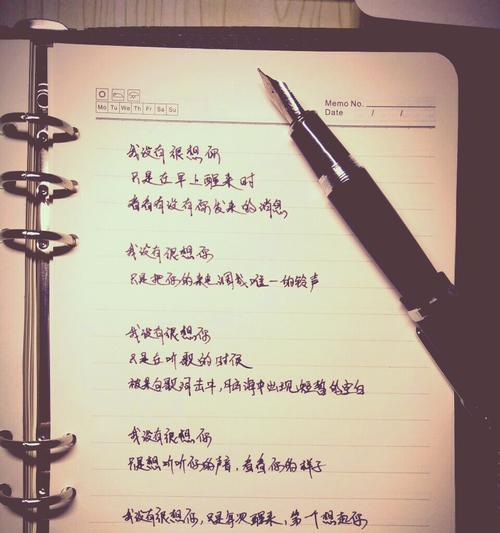 Memo No.
Mo Tu We Th Fr Sa Su
Date / /
我没有很想你
只是在早上醒来时
看看有没有你发来的消息
我没有很想你
只是把你的来电调成唯一的铃声
我没有很想你
只是在听歌的时候
被某句歌词击中,脑海中出现短暂的空白
我没有很想你
只是想听听你的声音,看看你的样子
我没有很想你,只是每次醒来,第一个想起你